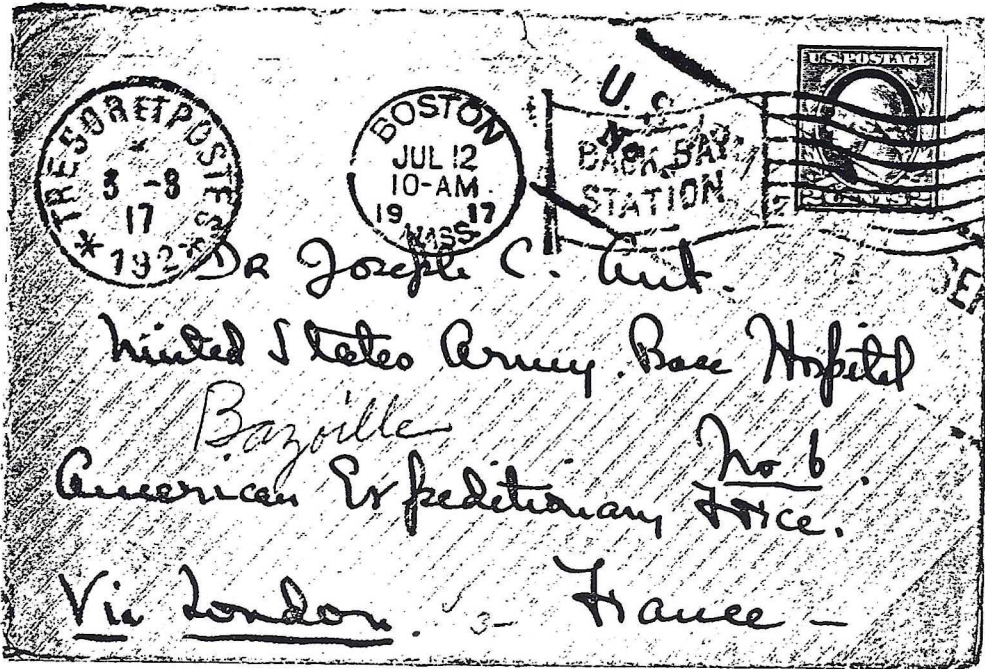 TRESOR ET POSTES
* 3 -8
17
* 192 *
BOSTON
JUL 12
10-AM
19 17
MASS.
U. S.
BACK BAY
STATION
U.S. POSTAGE
2 CENTS 2
Dr Joseph C. Aub.
United States Army. Base Hospital
No 6.
Bazoille
American Expeditionary Force.
Via London. 3- France -